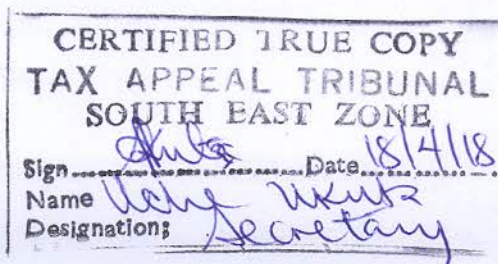 CERTIFIED TRUE COPY
TAX APPEAL TRIBUNAL
SOUTH EAST ZONE
Sign Date 18/4/18
Name Uche
Designation; Secretary